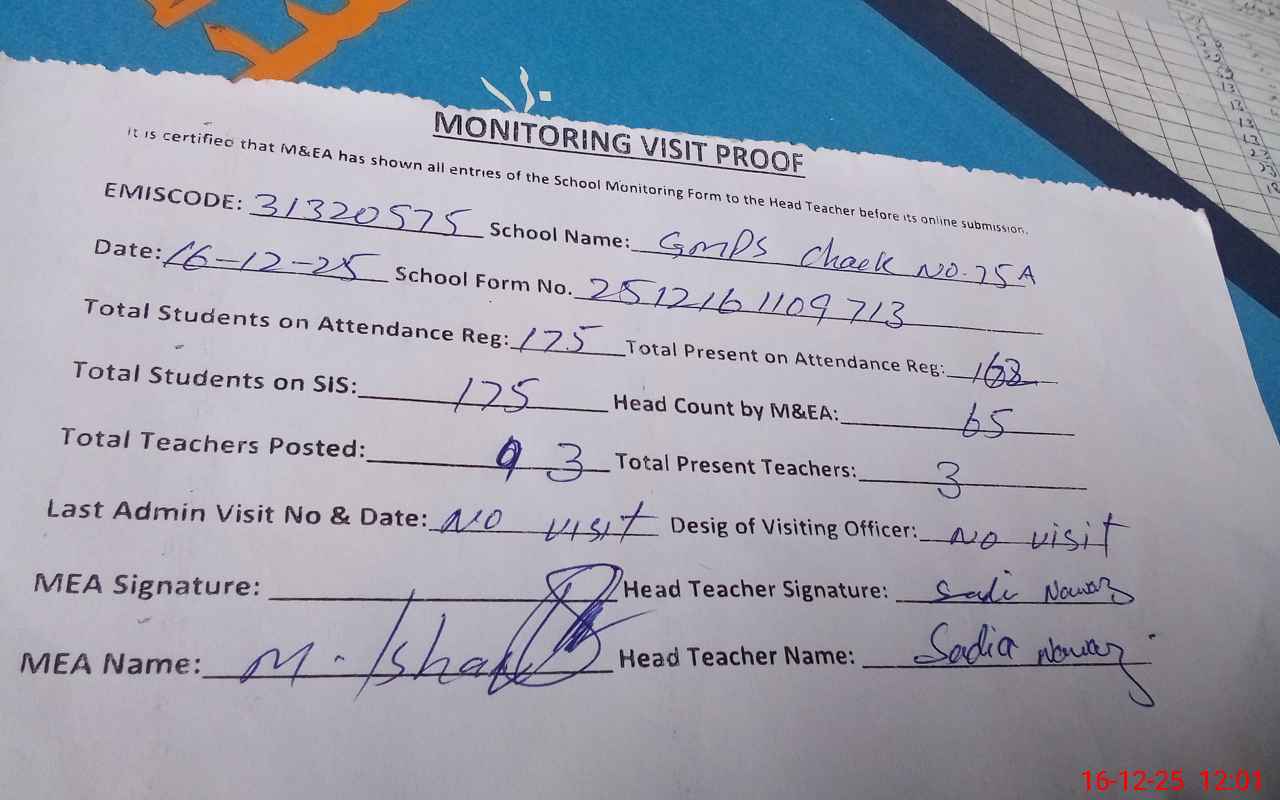 MONITORING VISIT PROOF
It is certified that M&EA has shown all entries of the School Monitoring Form to the Head Teacher before its online submission.
EMISCODE: 31320575 School Name: GMPS Chack No. 75A
Date: 16-12-25 School Form No. 2512161109713
Total Students on Attendance Reg: 175 Total Present on Attendance Reg:
Total Students on SIS: 175 Head Count by M&EA: 65
Total Teachers Posted: 3 Total Present Teachers: 3
Last Admin Visit No & Date: No visit Desig of Visiting Officer: No visit
MEA Signature: Head Teacher Signature: Sadi Nawaz
MEA Name: M. Ishaq Head Teacher Name: Sadia Nawaz
16-12-25 12:01